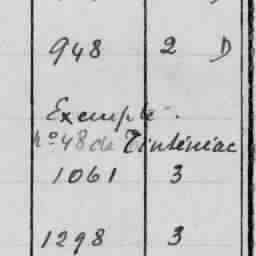 948 2 D
Exemple.
nº 48 de Tinténiac
1061 3
1298 3